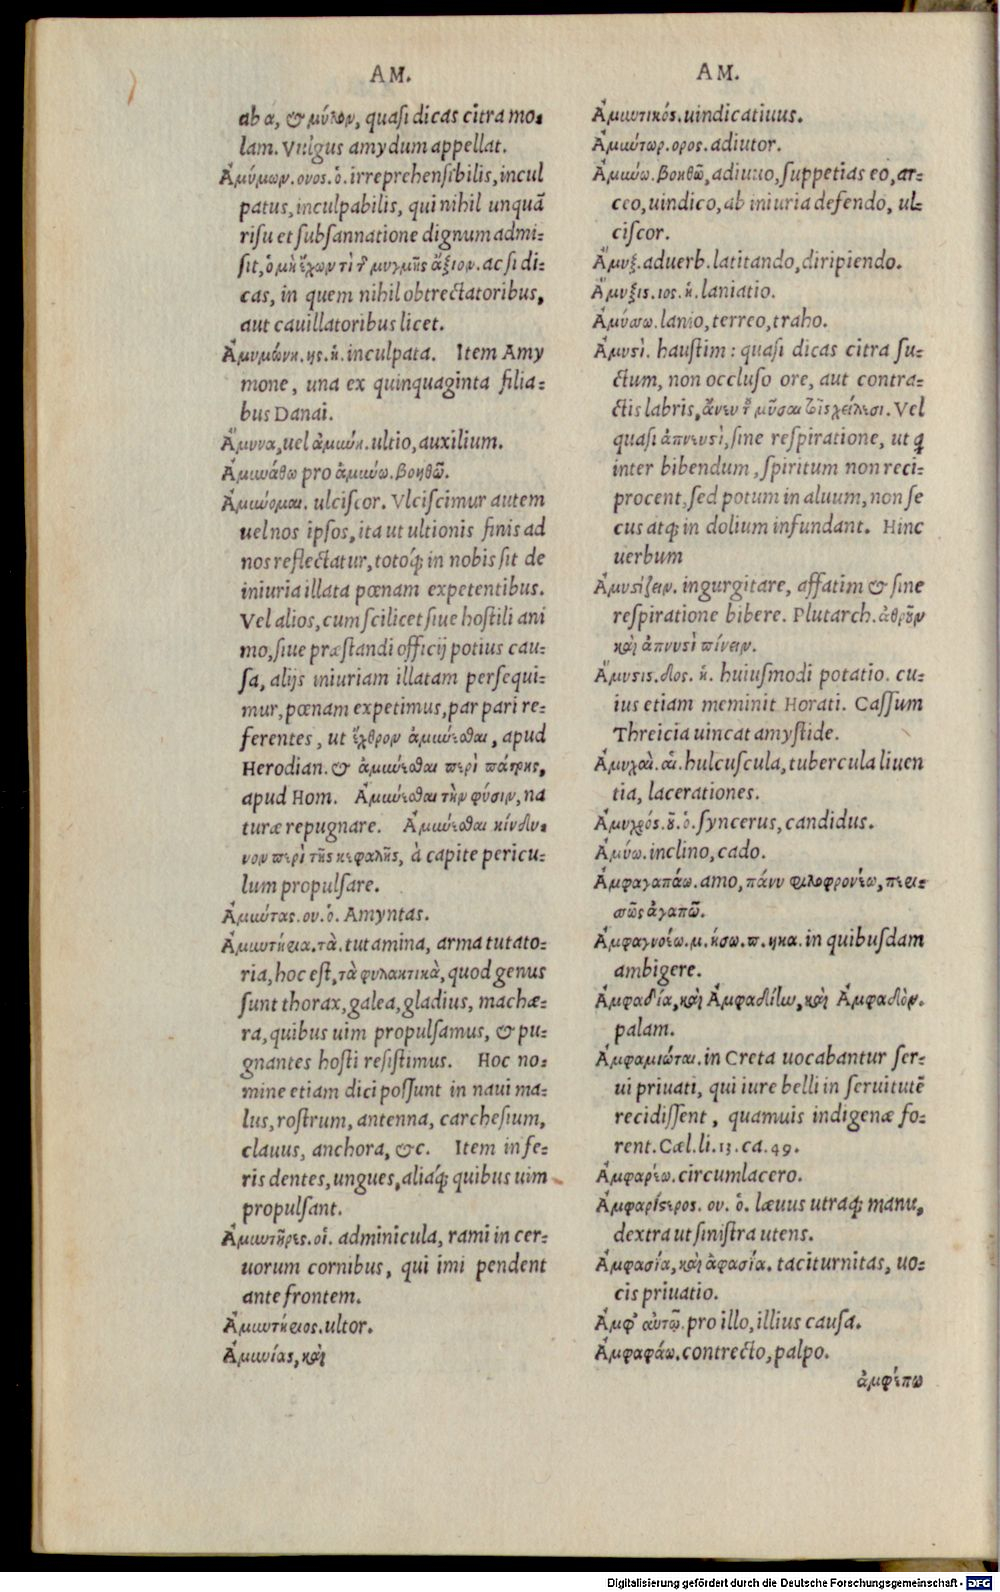 AM.
ab α, & μύλον, quasi dicas citra mo-
lam. Vulgus amydum appellat.
Ἀμύμων.ονος.ὁ.irreprehensibilis, incul
patus, inculpabilis, qui nihil unquā
risu et subsannatione dignum admi-
sit, ὁ μὴ ἔχων τὶ τ̃ μυγμῆς ἄξιον. ac si di-
cas, in quem nihil obtrectatoribus,
aut cauillatoribus licet.
Ἀμυμώνη.ης.ἡ.inculpata. Item Amy
mone, una ex quinquaginta filia-
bus Danai.
Ἄμυνα, uel ἀμύνη. ultio, auxilium.
Ἀμυνάθω pro ἀμύνω. βοηθῶ.
Ἀμύνομαι. ulciscor. Vlciscimur autem
uel nos ipsos, ita ut ultionis finis ad
nos reflectatur, totoq́; in nobis sit de
iniuria illata pœnam expetentibus.
Vel alios, cum scilicet siue hostili ani
mo, siue præstandi officij potius cau-
sa, alijs iniuriam illatam persequi-
mur, pœnam expetimus, par pari re-
ferentes, ut ἔχθρον ἀμύνεσθαι, apud
Herodian. & ἀμύνεσθαι περὶ πάτρης,
apud Hom. Ἀμύνεσθαι τὴν φύσιν, na
turæ repugnare. Ἀμύνεσθαι κίνδυ-
νον περὶ τῆς κεφαλῆς, à capite pericu-
lum propulsare.
Ἀμύντας.ου.ὁ. Amyntas.
Ἀμυντήρια.τὰ. tutamina, arma tutato-
ria, hoc est, τὰ φυλακτικὰ, quod genus
sunt thorax, galea, gladius, machæ-
ra, quibus uim propulsamus, & pu-
gnantes hosti resistimus. Hoc no-
mine etiam dici possunt in naui ma-
lus, rostrum, antenna, carchesium,
clauus, anchora, &c. Item in fe-
ris dentes, ungues, aliáq; quibus uim
propulsant.
Ἀμυντῆρες.οἱ. adminicula, rami in cer-
uorum cornibus, qui imi pendent
ante frontem.
Ἀμυντήριος.ultor.
Ἀμυνίας, καὶ
AM.
Ἀμυντικός. uindicatiuus.
Ἀμύντωρ.ορος. adiutor.
Ἀμύνω. βοηθῶ, adiuuo, suppetias eo, ar-
ceo, uindico, ab iniuria defendo, ul-
ciscor.
Ἄμυξ. aduerb. latitando, diripiendo.
Ἄμυξις.ιος.ἡ. laniatio.
Ἀμύσσω. lanio, terreo, traho.
Ἀμυστὶ. haustim: quasi dicas citra su-
ctum, non occluso ore, aut contra-
ctis labris, ἄνευ τ̃ μῦσαι τοῖς χείλεσι. Vel
quasi ἀπνευστὶ, sine respiratione, ut q
inter bibendum, spiritum non reci-
procent, sed potum in aluum, non se
cus atq; in dolium infundant. Hinc
uerbum
Ἀμυστίζειν. ingurgitare, affatim & sine
respiratione bibere. Plutarch. ἀθροῦν
καὶ ἀπνυστὶ πίνειν.
Ἄμυστις.δος. ἡ. huiusmodi potatio. cu-
ius etiam meminit Horati. Cassum
Threicia uincat amystide.
Ἀμυχαὶ. αἱ. hulcuscula, tubercula liuen
tia, lacerationes.
Ἀμυχρός. οῦ. ὁ. syncerus, candidus.
Ἀμύω. inclino, cado.
Ἀμφαγαπάω. amo, πάνυ φιλοφρονέω, περισ-
σῶς ἀγαπῶ.
Ἀμφαγνοέω.μ.ήσω.π.ηκα. in quibusdam
ambigere.
Ἀμφαδία, καὶ Ἀμφαδίην, καὶ Ἀμφαδὸν.
palam.
Ἀμφαμιῶται. in Creta uocabantur ser-
ui priuati, qui iure belli in seruitutē
recidissent, quamuis indigenæ fo-
rent. Cæl.li.13.ca.49.
Ἀμφαρέω. circumlacero.
Ἀμφαρίστερος. ου. ὁ. læuus utraq; manu,
dextra ut sinistra utens.
Ἀμφασία, καὶ ἀφασία. taciturnitas, uo-
cis priuatio.
Ἀμφ' αὐτῷ. pro illo, illius causa.
Ἀμφαφάω. contrecto, palpo.
ἀμφέπω
Digitalisierung gefördert durch die Deutsche Forschungsgemeinschaft - DFG